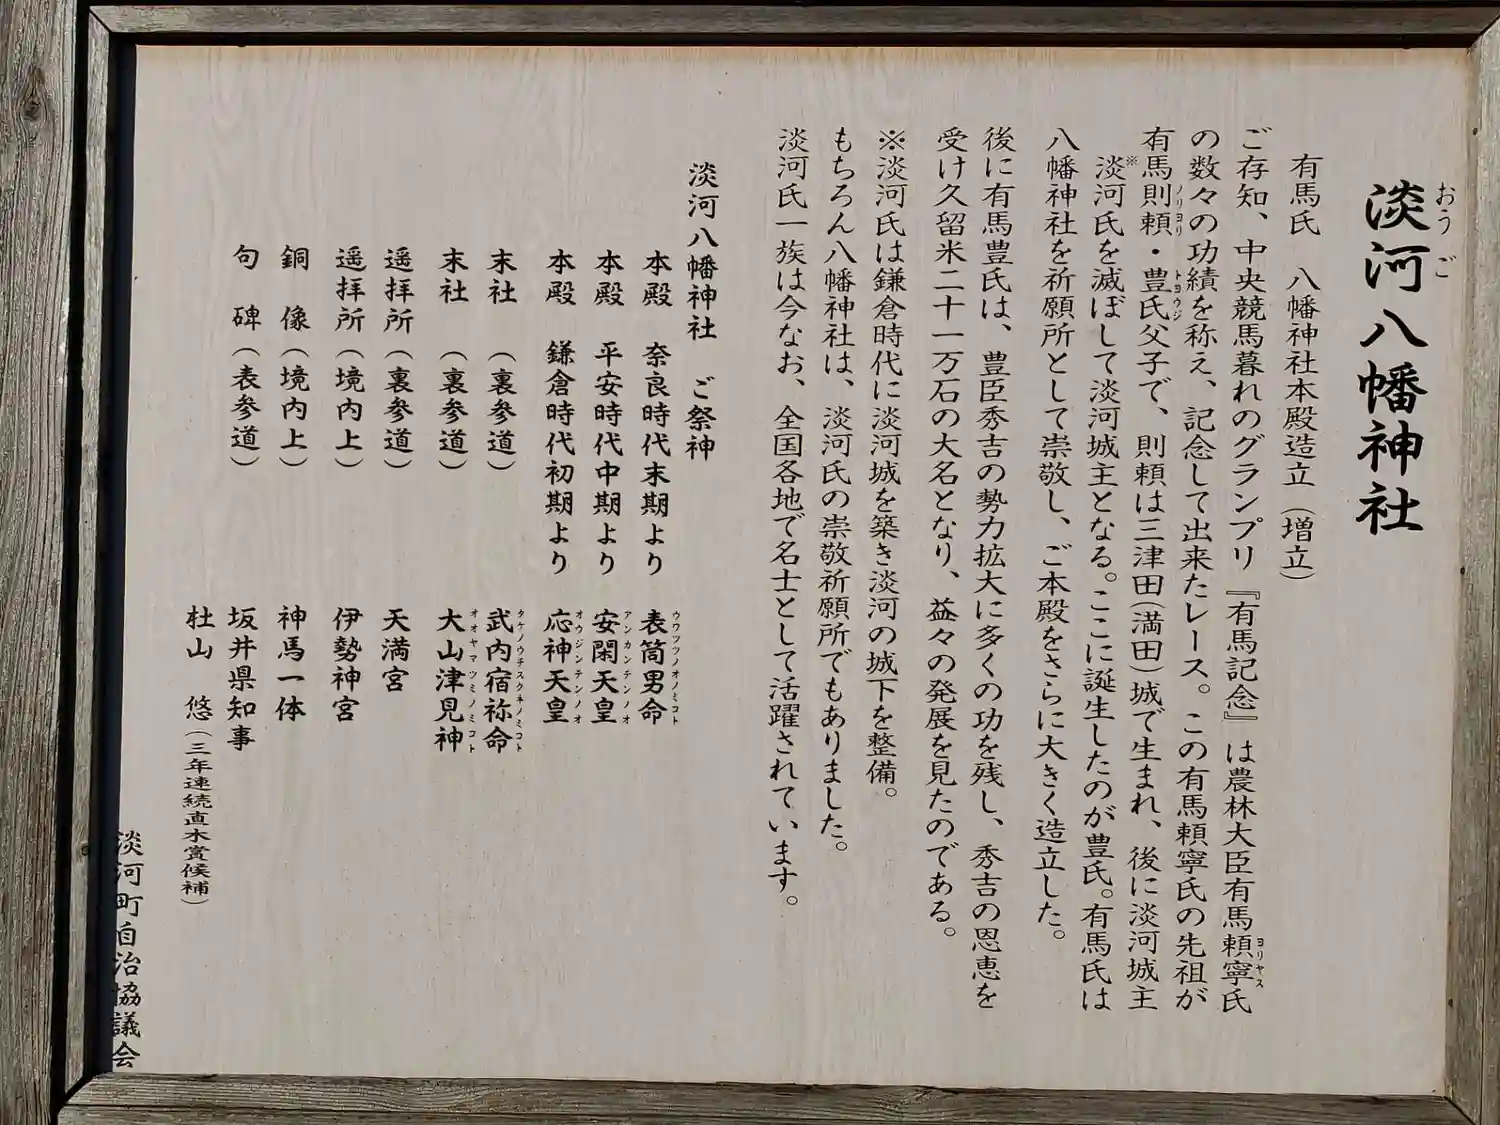 淡河八幡神社
おうご
有馬氏　八幡神社本殿造立（増立）
ご存知、中央競馬暮れのグランプリ『有馬記念』は農林大臣有馬頼寧氏
ヨリヤス
の数々の功績を称え、記念して出来たレース。この有馬頼寧氏の先祖が
有馬則頼・豊氏父子で、則頼は三津田（満田）城で生まれ、後に淡河城主
ノリヨリ　トヨウジ
※淡河氏を滅ぼして淡河城主となる。ここに誕生したのが豊氏。有馬氏は
八幡神社を祈願所として崇敬し、ご本殿をさらに大きく造立した。
後に有馬豊氏は、豊臣秀吉の勢力拡大に多くの功を残し、秀吉の恩恵を
受け久留米二十一万石の大名となり、益々の発展を見たのである。
※淡河氏は鎌倉時代に淡河城を築き淡河の城下を整備。
もちろん八幡神社は、淡河氏の崇敬祈願所でもありました。
淡河氏一族は今なお、全国各地で名士として活躍されています。
淡河八幡神社　ご祭神
本殿　奈良時代末期より　表筒男命
ウワツツノオノミコト
本殿　平安時代中期より　安閑天皇
アンカンテンノオ
本殿　鎌倉時代初期より　応神天皇
オウジンテンノオ
末社　（裏参道）　武内宿祢命
タケノウチスクネノミコト
末社　（裏参道）　大山津見神
オオヤマツミノミコト
遥拝所（裏参道）　天満宮
遥拝所（境内上）　伊勢神宮
銅　像（境内上）　神馬一体
句　碑（表参道）　坂井県知事
杜山　悠（三年連続直木賞候補）
淡河町自治協議会